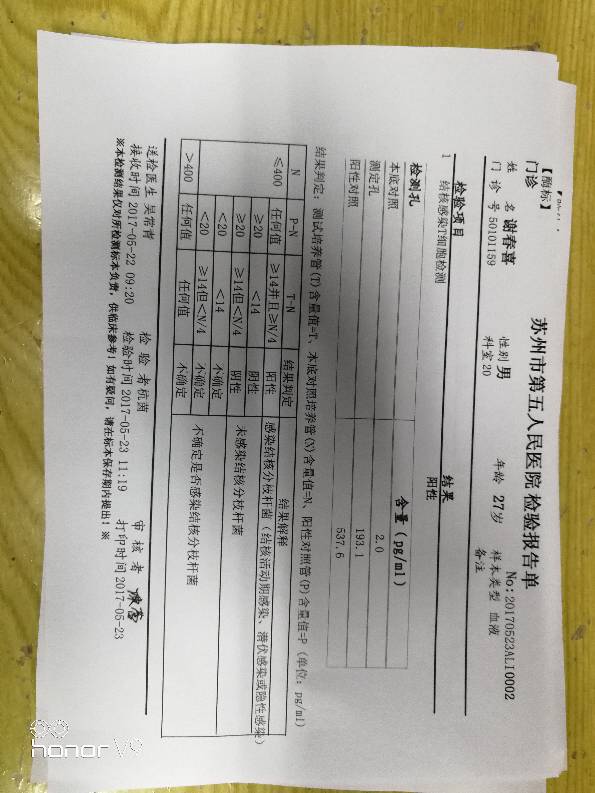 苏州市第五人民医院检验报告单
【酶标】
No:20170523ALI0002
门诊
姓 名 谢春喜 性别 男 年龄 27岁 样本类型 血液
门 诊 号 50101159 科室 20 备注
检验项目 结果
1 结核感染T细胞检测 阳性
检测孔 含量(pg/ml)
本底对照 2.0
测定孔 193.1
阳性对照 537.6
结果判定：测试培养管(T)含量值=T、本底对照培养管(N)含量值=N、阳性对照管(P)含量值=P（单位：pg/ml）
N P-N T-N 结果判定 结果解释
≤400 任何值 ≥14并且≥N/4 阳性 感染结核分枝杆菌（结核活动期感染、潜伏感染或隐性感染）
≥20 <14 阴性 未感染结核分枝杆菌
≥20 ≥14但<N/4 阴性
<20 <14 不确定 不确定是否感染结核分枝杆菌
<20 ≥14但<N/4 不确定
>400 任何值 任何值 不确定
送检医生 吴常青 检 验 者 杭茵 审 核 者
接收时间 2017-05-22 09:20 检验时间 2017-05-23 11:19 打印时间 2017-05-23
※本检测结果仅对所检测标本负责，供临床参考！如有疑问，请在标本保存期内提出！※
honor V9